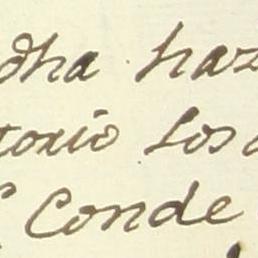 dha haz
torio los
Conde